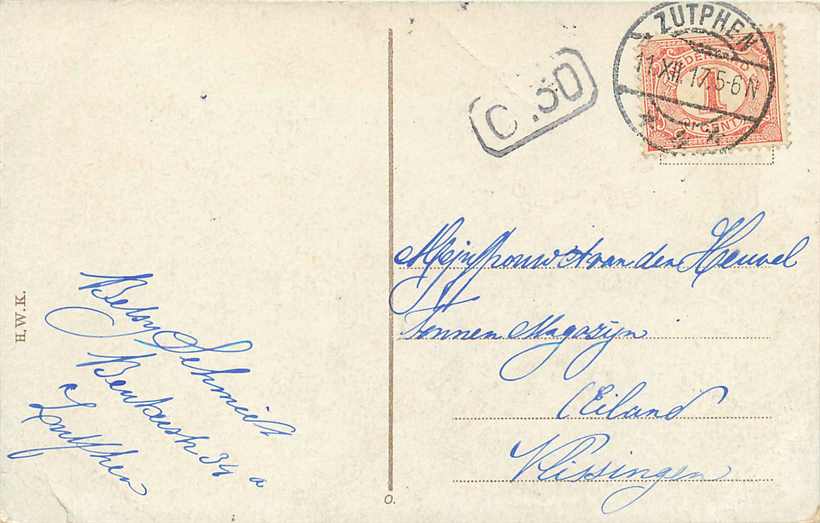 ZUTPHEN
11 XII 17 5-6 N
NEDERLAND
1
CENT
C.30
Mejuffrouw A van den Heuvel
Tonnen Magazijn
Eiland
Vlissingen
Betsy Schmidt
34 a
Zutphen
H.W.K.
O.